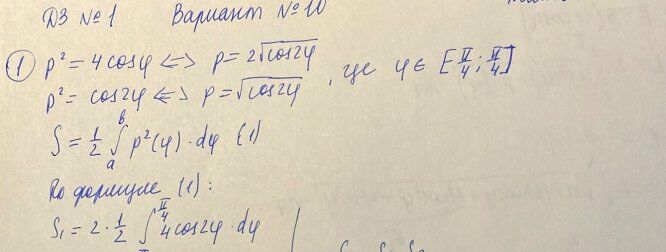 ДЗ №1 Вариант №10
① ρ² = 4cosφ <=> ρ = 2√cos2φ
ρ² = cos2φ <=> ρ = √cos2φ , где φ ∈ [π/4; π/4]
S = 1/2 ∫ₐᵇ ρ²(φ)·dφ (1)
По формуле (1):
S₁ = 2·1/2 ∫^(π/4) 4cos2φ·dφ